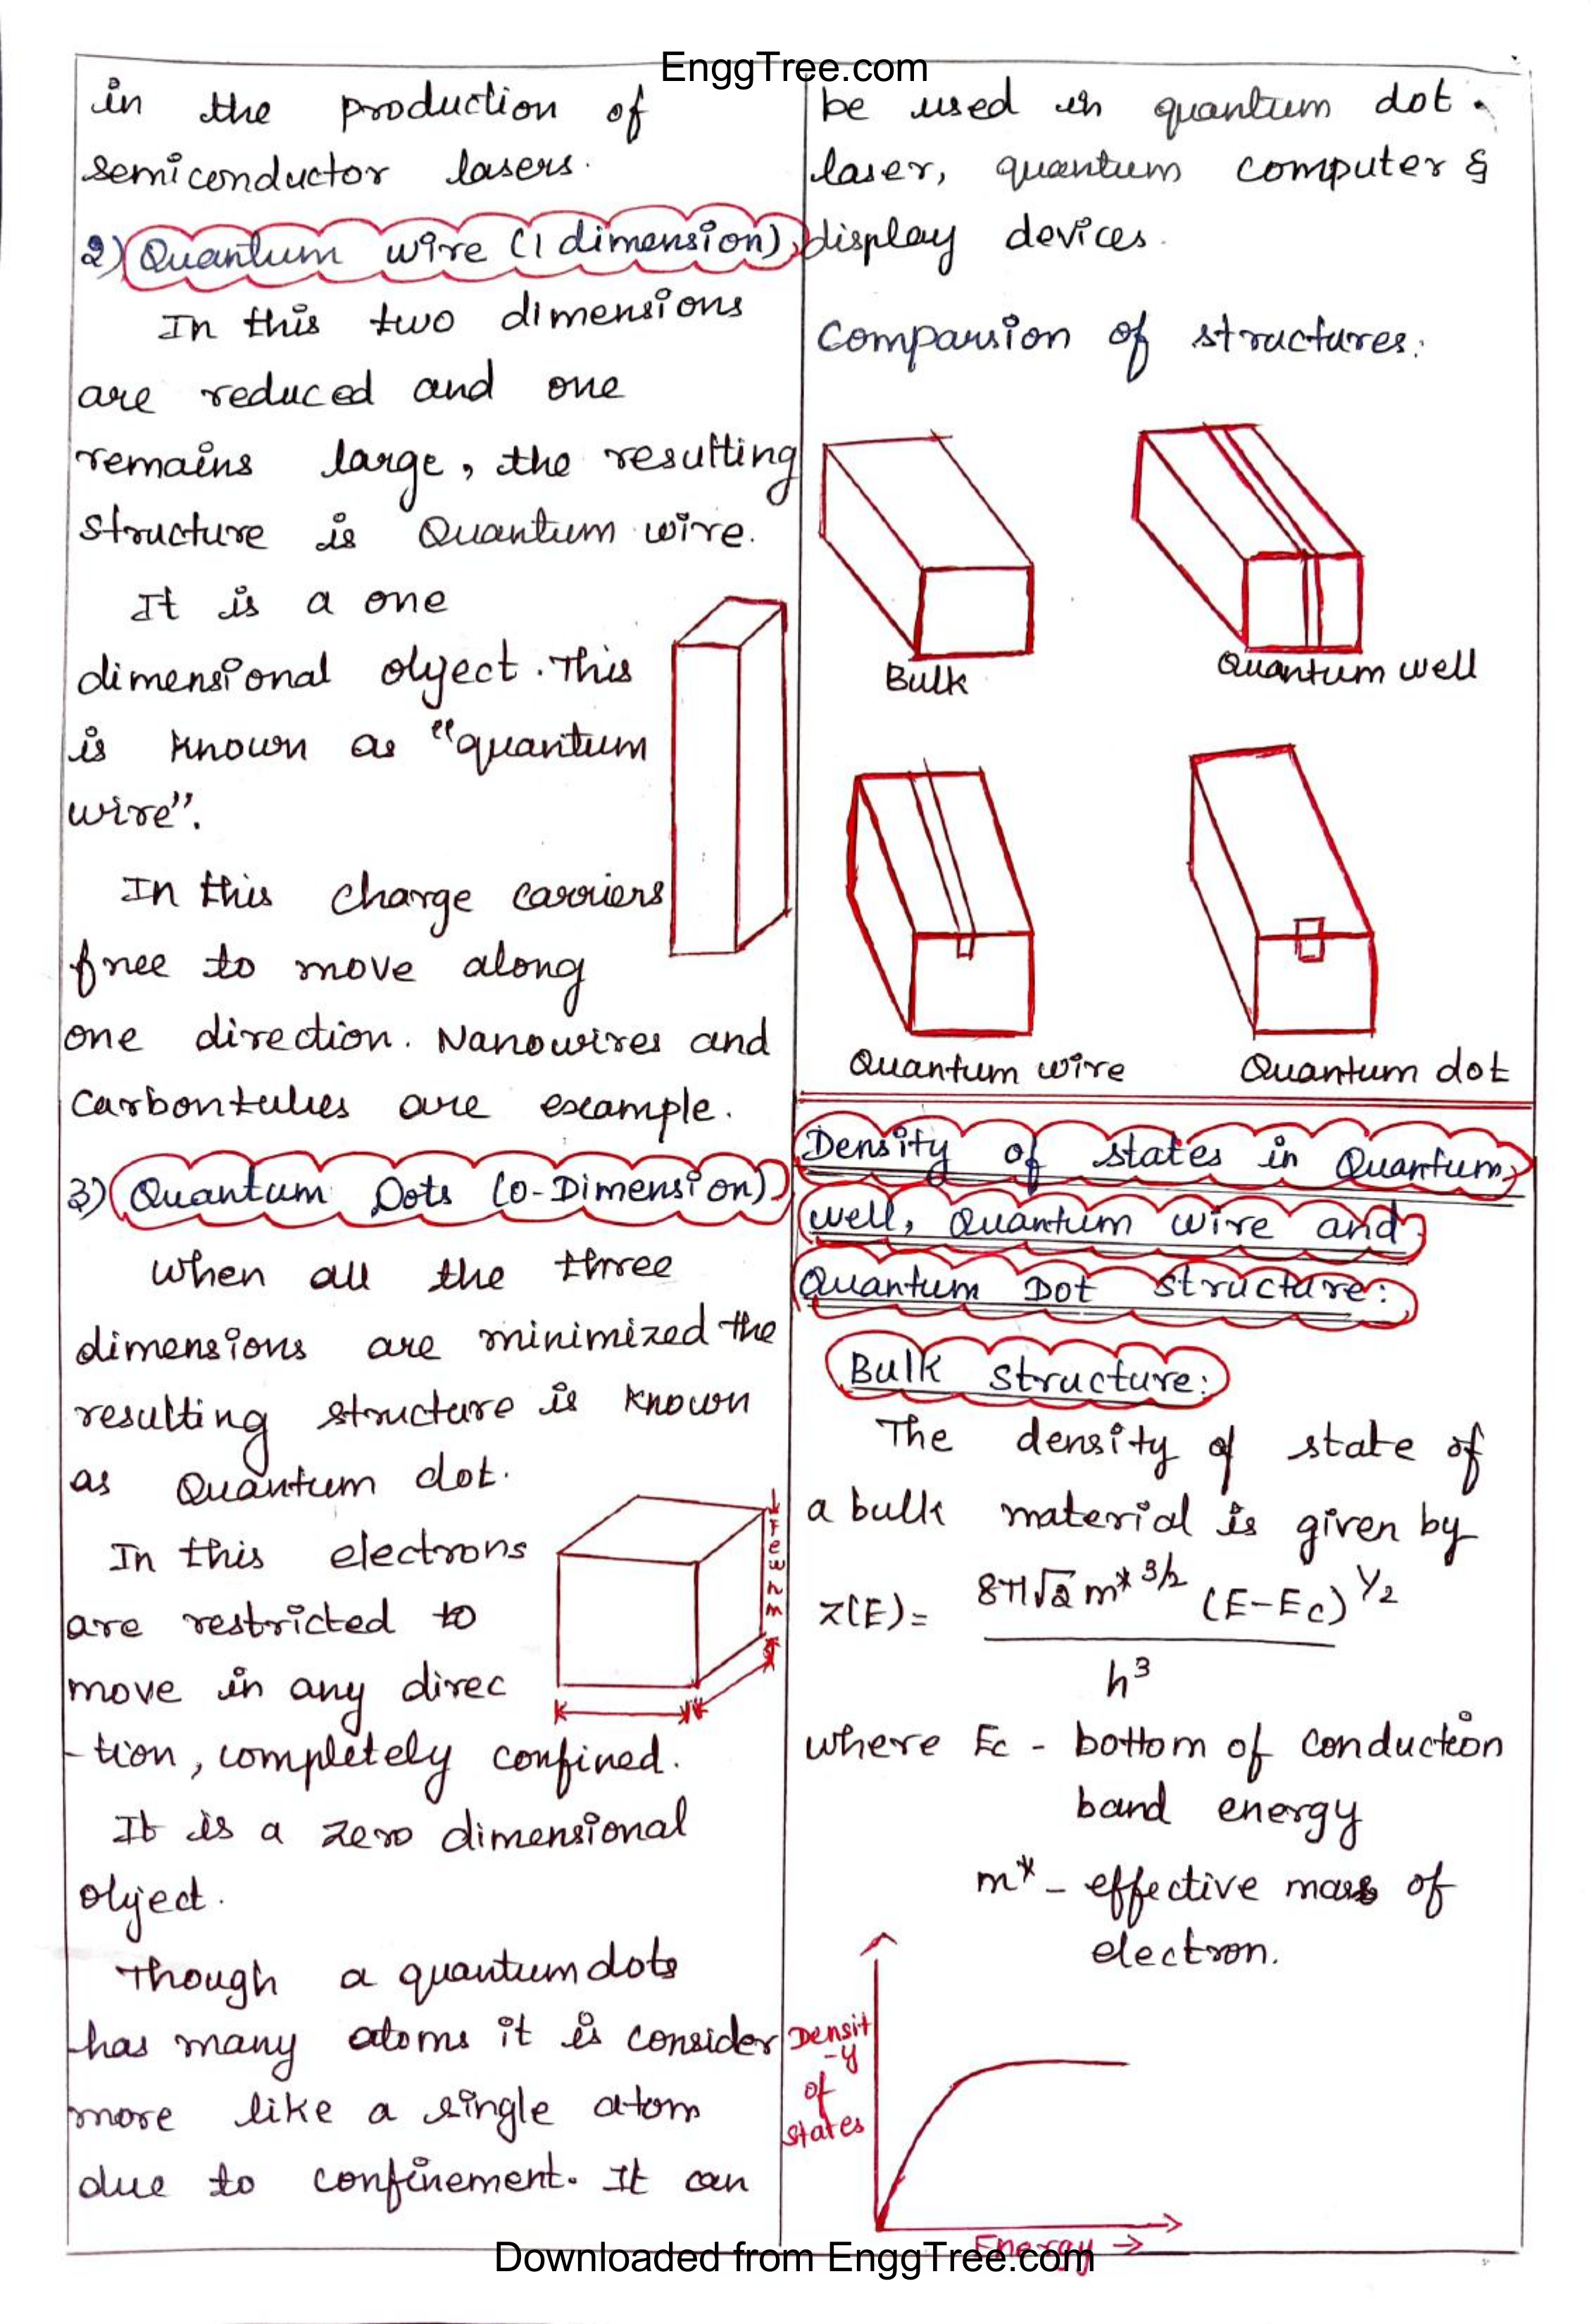 EnggTree.com
in the production of
semiconductor lasers.
2) Quantum wire (1 dimension)
In this two dimensions
are reduced and one
remains large, the resulting
structure is Quantum wire.
It is a one
dimensional object. This
is known as "quantum
wire".
In this charge carriers
free to move along
one direction. Nanowires and
Carbontubes are example.
3) Quantum Dots (0-Dimension)
When all the three
dimensions are minimized the
resulting structure is known
as Quantum dot.
In this electrons
are restricted to
move in any direc
-tion, completely confined.
It is a zero dimensional
object.
Though a quantum dots
has many atoms it is consider
more like a single atom
due to confinement. It can
Few nm
be used in quantum dot
laser, quantum computer &
display devices.
Comparsion of structures:
Bulk
Quantum well
Quantum wire
Quantum dot
Density of states in Quantum
well, Quantum wire and
Quantum Dot structure:
Bulk structure:
The density of state of
a bulk material is given by
Z(E) = 8π√2 m* 3/2 (E-Ec) 1/2
h³
where Ec - bottom of conduction
band energy
m* - effective mass of
electron.
Densit
-y
of
states
Energy →
Downloaded from EnggTree.com